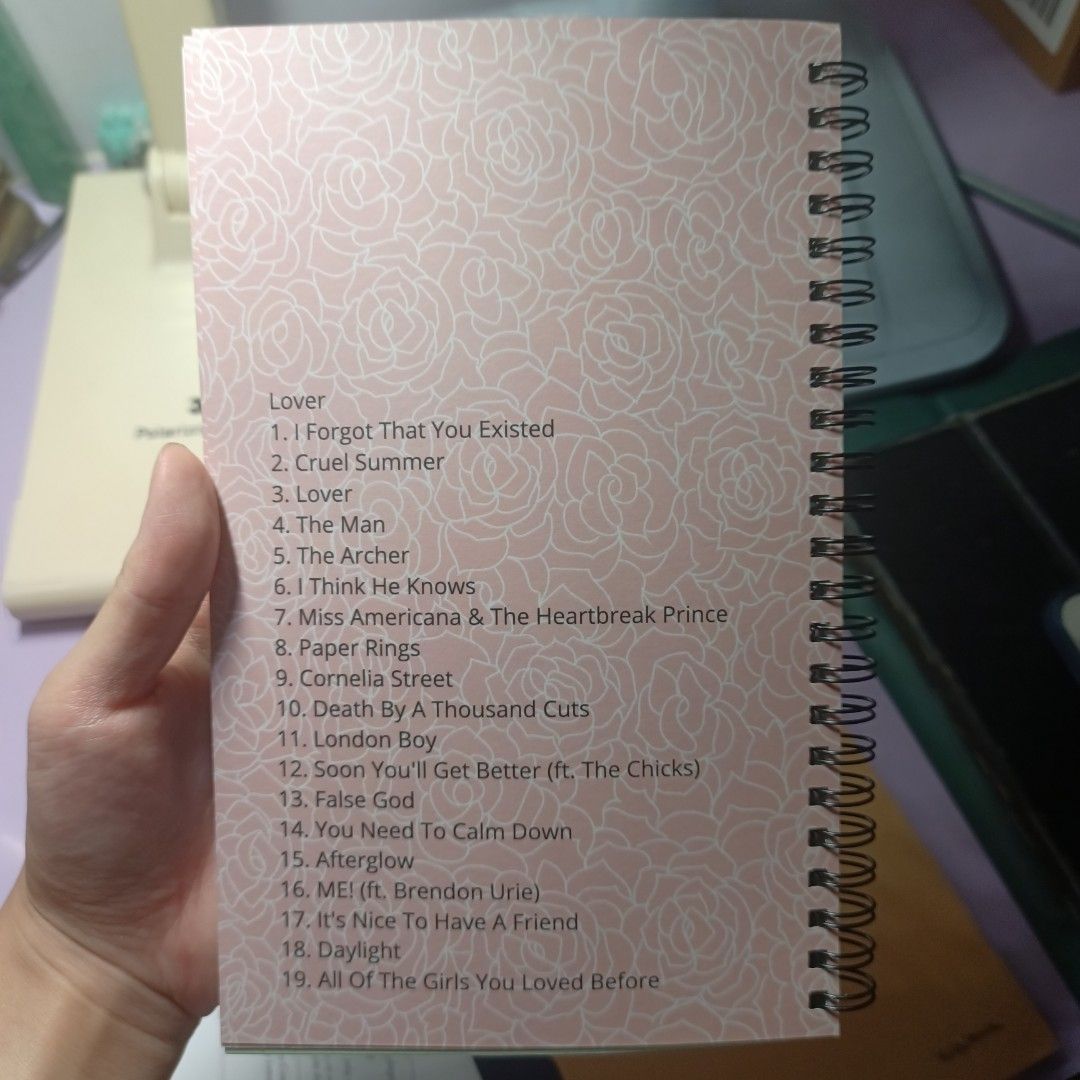 Lover
1. I Forgot That You Existed
2. Cruel Summer
3. Lover
4. The Man
5. The Archer
6. I Think He Knows
7. Miss Americana & The Heartbreak Prince
8. Paper Rings
9. Cornelia Street
10. Death By A Thousand Cuts
11. London Boy
12. Soon You'll Get Better (ft. The Chicks)
13. False God
14. You Need To Calm Down
15. Afterglow
16. ME! (ft. Brendon Urie)
17. It's Nice To Have A Friend
18. Daylight
19. All Of The Girls You Loved Before